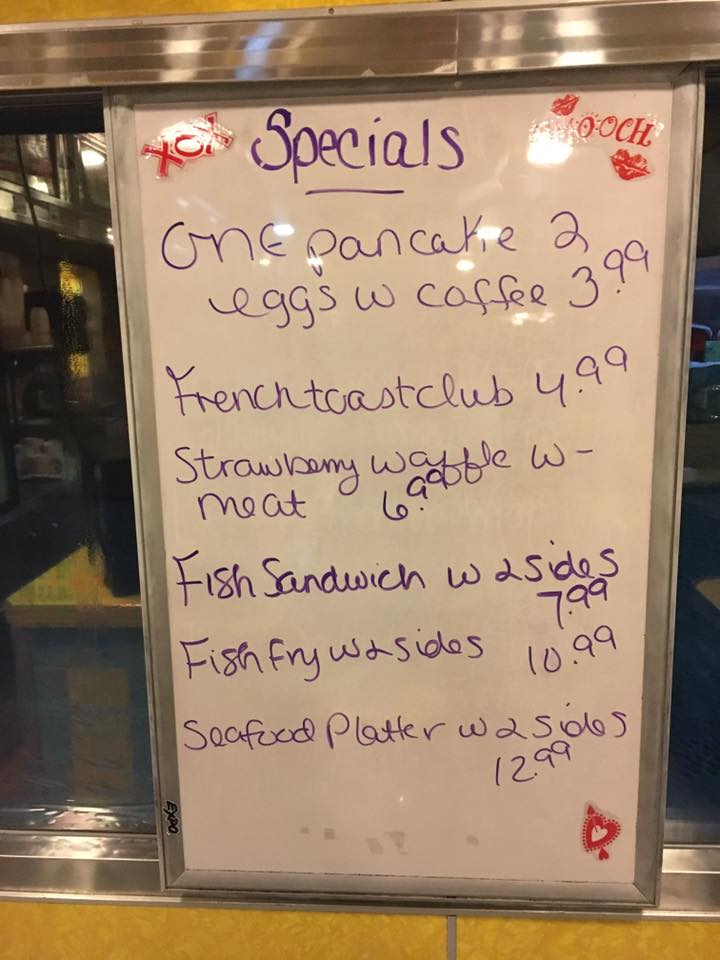 XOX
Specials
OOCH
One pancake 2
eggs w coffee 3.99
French toast club 4.99
Strawberry waffle w-
meat 6.99
Fish Sandwich w 2 sides
7.99
Fish Fry w 2 sides 10.99
Seafood Platter w 2 sides
12.99
EXPO